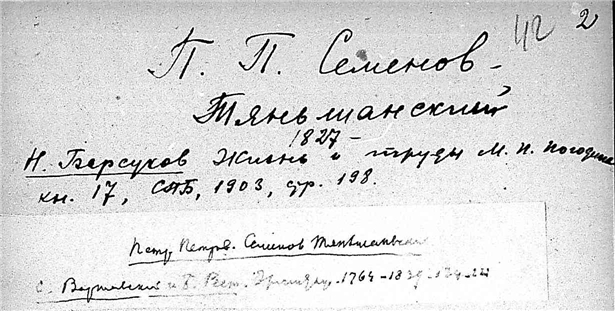 42 2
П. П. Семенов-
Тяньшанский
1827 -
Н. Барсуков Жизнь и труды М. П. Погодина
кн. 17, СПБ, 1903, стр. 198.
Петр Петров. Семенов Тяньшанский
с. и В. 1764-1839